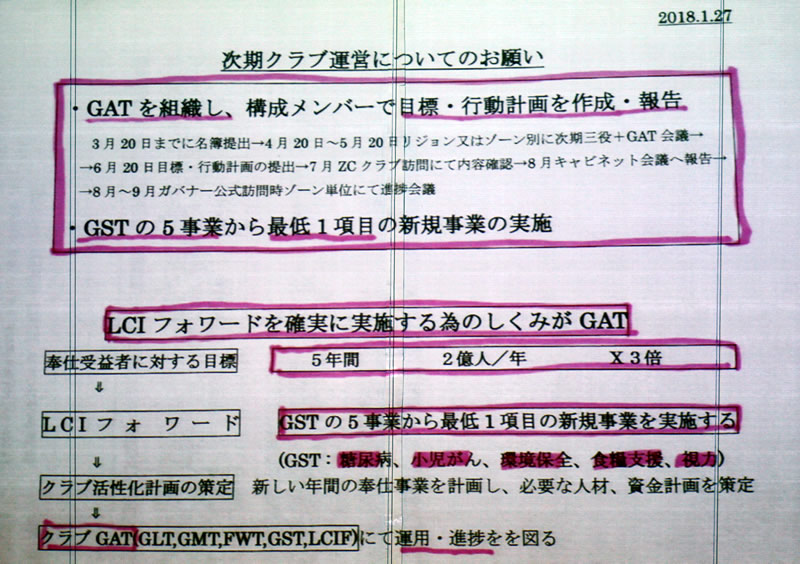 2018.1.27
次期クラブ運営についてのお願い
・GATを組織し、構成メンバーで目標・行動計画を作成・報告
3月20日までに名簿提出→4月20日～5月20日リジョン又はゾーン別に次期三役＋GAT会議→
→6月20日目標・行動計画の提出→7月ZCクラブ訪問にて内容確認→8月キャビネット会議へ報告→
→8月～9月ガバナー公式訪問時ゾーン単位にて進捗会議
・GSTの5事業から最低1項目の新規事業の実施
LCIフォワードを確実に実施する為のしくみがGAT
奉仕受益者に対する目標 5年間 2億人／年 X3倍
⇩
LCIフォワード GSTの5事業から最低1項目の新規事業を実施する
⇩ (GST：糖尿病、小児がん、環境保全、食糧支援、視力)
クラブ活性化計画の策定 新しい年間の奉仕事業を計画し、必要な人材、資金計画を策定
⇩
クラブGAT(GLT,GMT,FWT,GST,LCIF)にて運用・進捗をを図る